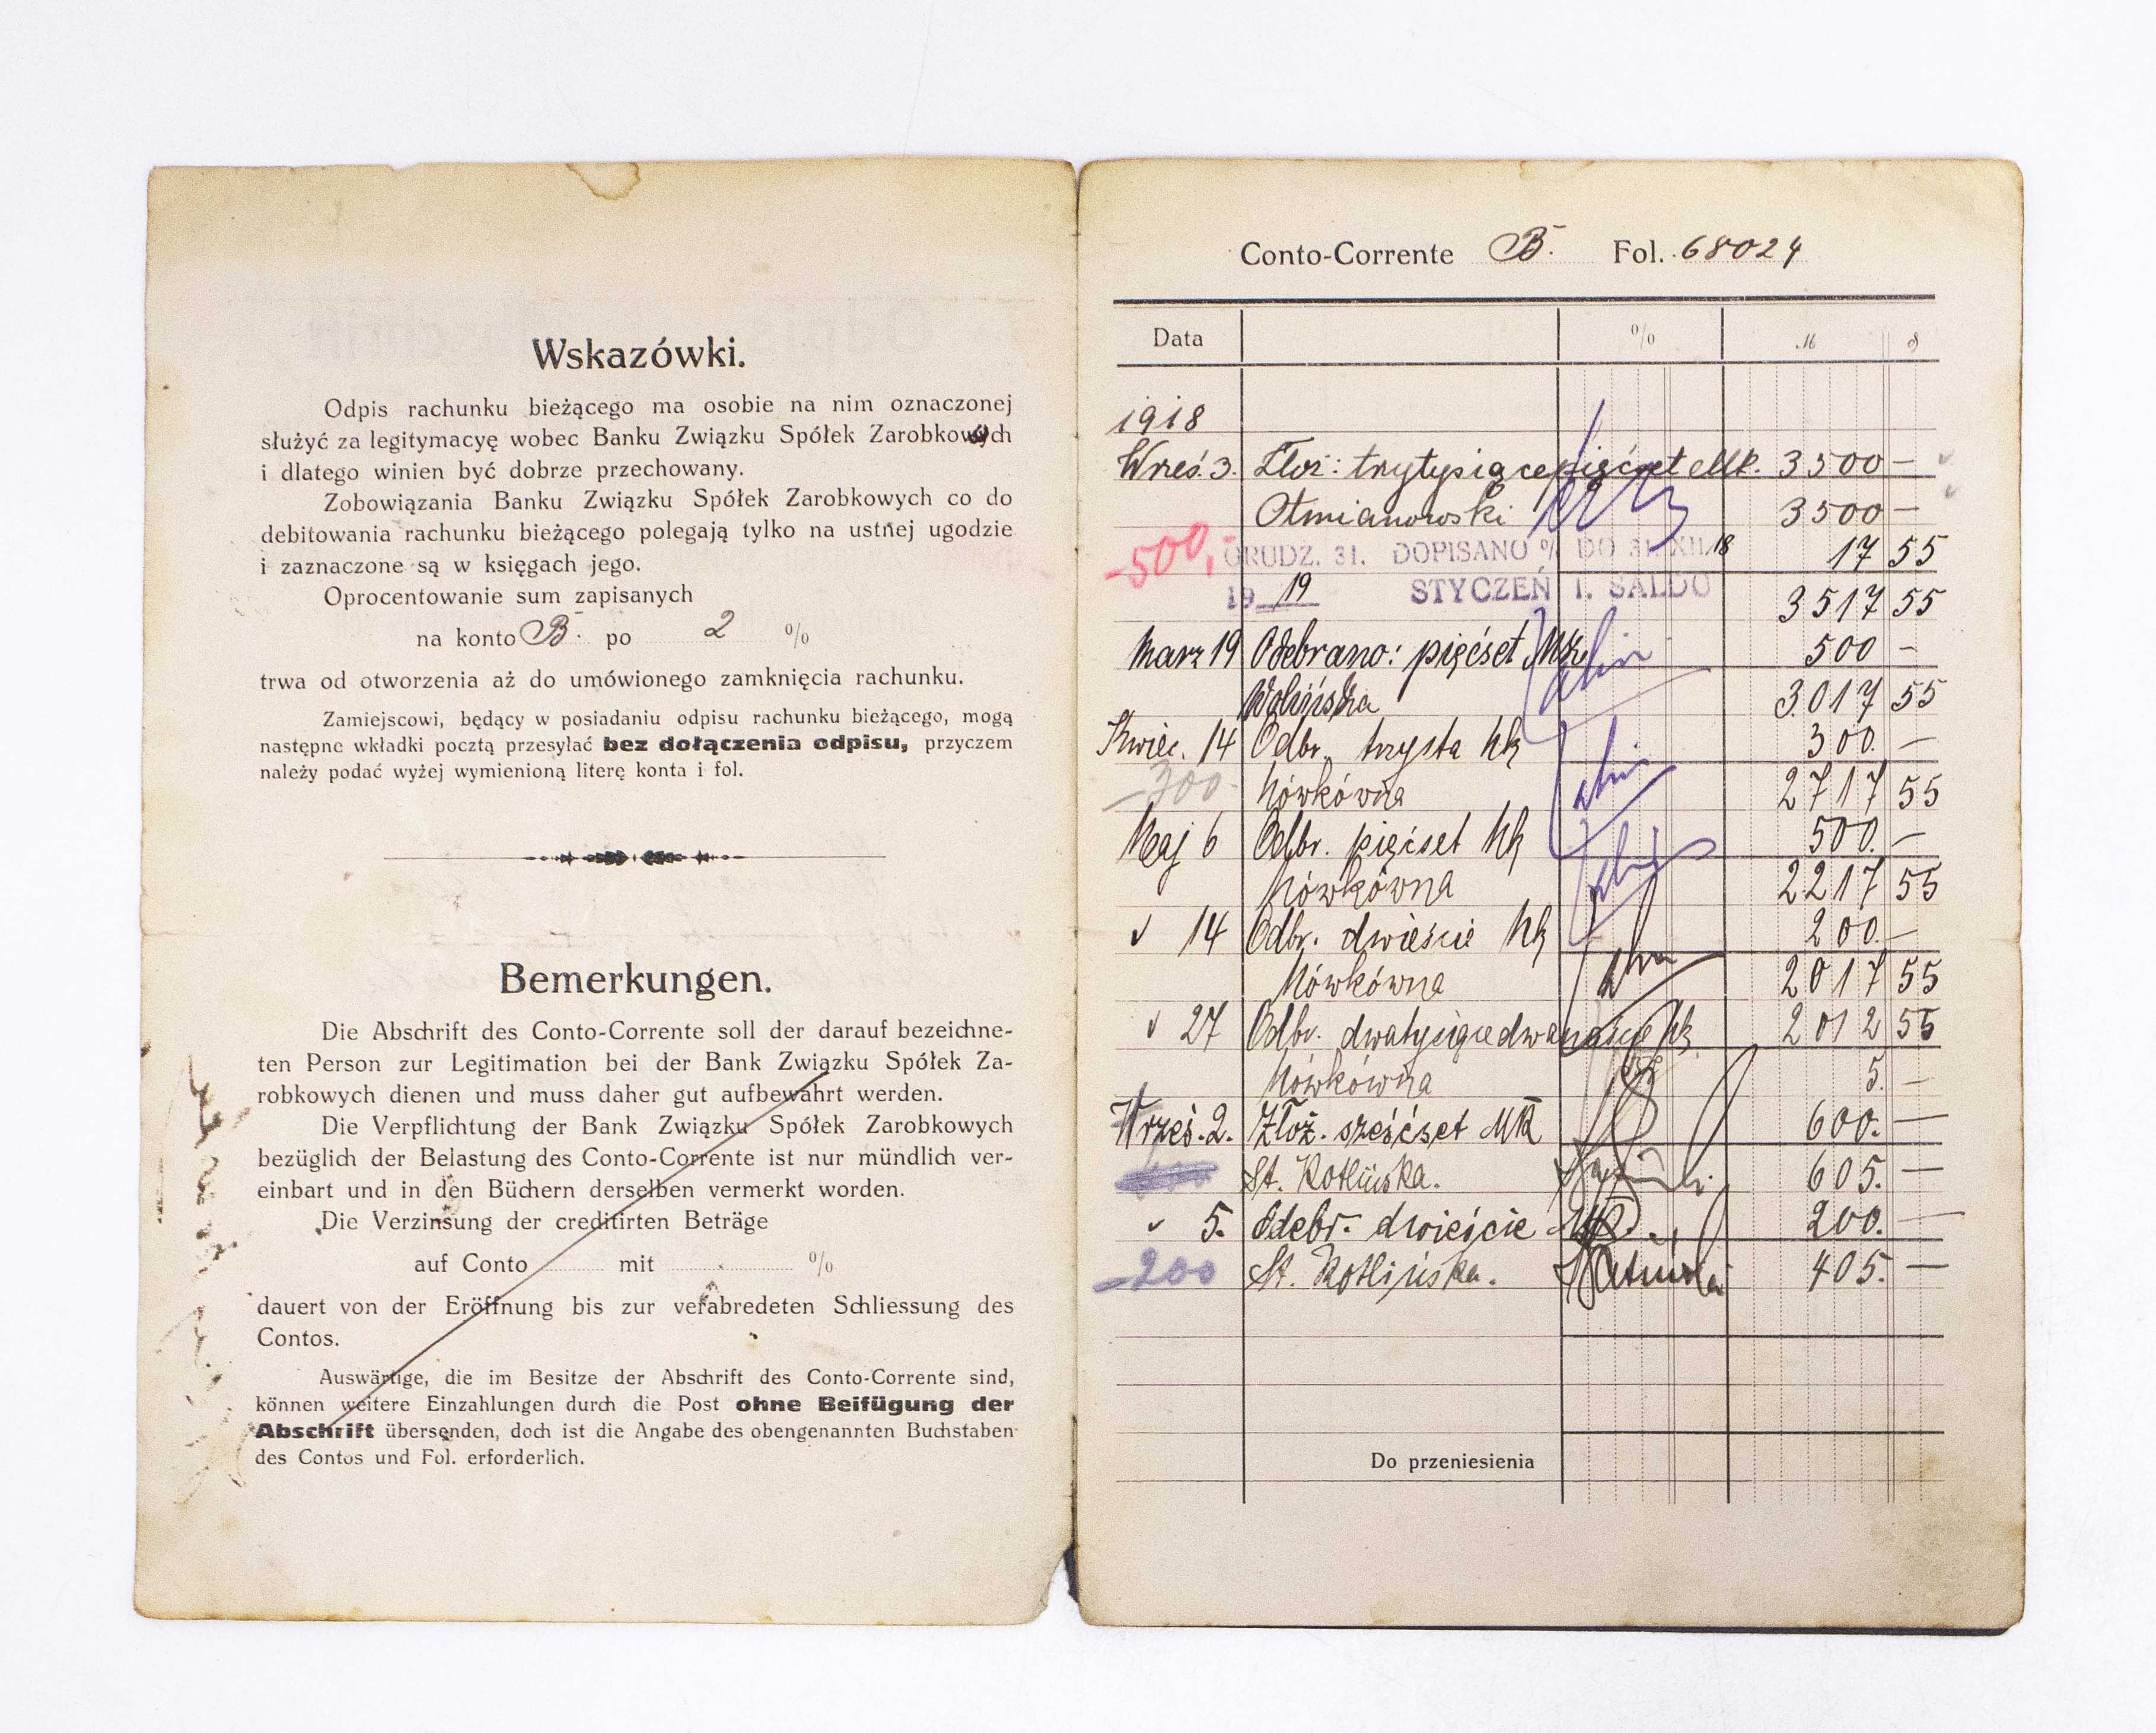 Wskazówki.
Odpis rachunku bieżącego ma osobie na nim oznaczonej
służyć za legitymacyę wobec Banku Związku Spółek Zarobkowych
i dlatego winien być dobrze przechowany.
Zobowiązania Banku Związku Spółek Zarobkowych co do
debitowania rachunku bieżącego polegają tylko na ustnej ugodzie
i zaznaczone są w księgach jego.
Oprocentowanie sum zapisanych
na konto B. po 2 %
trwa od otworzenia aż do umówionego zamknięcia rachunku.
Zamiejscowi, będący w posiadaniu odpisu rachunku bieżącego, mogą
następne wkładki pocztą przesyłać bez dołączenia odpisu, przyczem
należy podać wyżej wymienioną literę konta i fol.
Bemerkungen.
Die Abschrift des Conto-Corrente soll der darauf bezeichne-
ten Person zur Legitimation bei der Bank Związku Spółek Za-
robkowych dienen und muss daher gut aufbewahrt werden.
Die Verpflichtung der Bank Związku Spółek Zarobkowych
bezüglich der Belastung des Conto-Corrente ist nur mündlich ver-
einbart und in den Büchern derselben vermerkt worden.
Die Verzinsung der creditirten Beträge
auf Conto mit %
dauert von der Eröffnung bis zur verabredeten Schliessung des
Contos.
Auswärtige, die im Besitze der Abschrift des Conto-Corrente sind,
können weitere Einzahlungen durch die Post ohne Beifügung der
Abschrift übersenden, doch ist die Angabe des obengenannten Buchstaben
des Contos und Fol. erforderlich.
Conto-Corrente B. Fol. 68024
Data % M
1918
Wrześ. 3. Złoż: trzytysiącepięćset Mk. 3500 —
Otmianowski 3500 —
-500,- GRUDZ. 31. DOPISANO % DO 31.XII.18 17 55
19 19 STYCZEŃ 1. SALDO 3517 55
Marz 19 Odebrano: pięćset Mk 500 —
Wolińska 3017 55
Kwiec. 14 Odbr. trzysta Mk 300. —
-300- Nówkówna 2717 55
Maj 6 Odbr. pięćset Mk 500. —
Nówkówna 2217 55
14 Odbr. dwieście Mk 200. —
Nówkówna 2017 55
27 Odbr. dwatysiącedwanaście Mk 2012 55
Nówkówna 5. —
Wrześ. 2. Złoż. sześćset MK 600. —
St. Kotlińska. 605. —
5. Odebr. dwieście Mk. 200. —
-200 St. Kotlińska. 405. —
Do przeniesienia